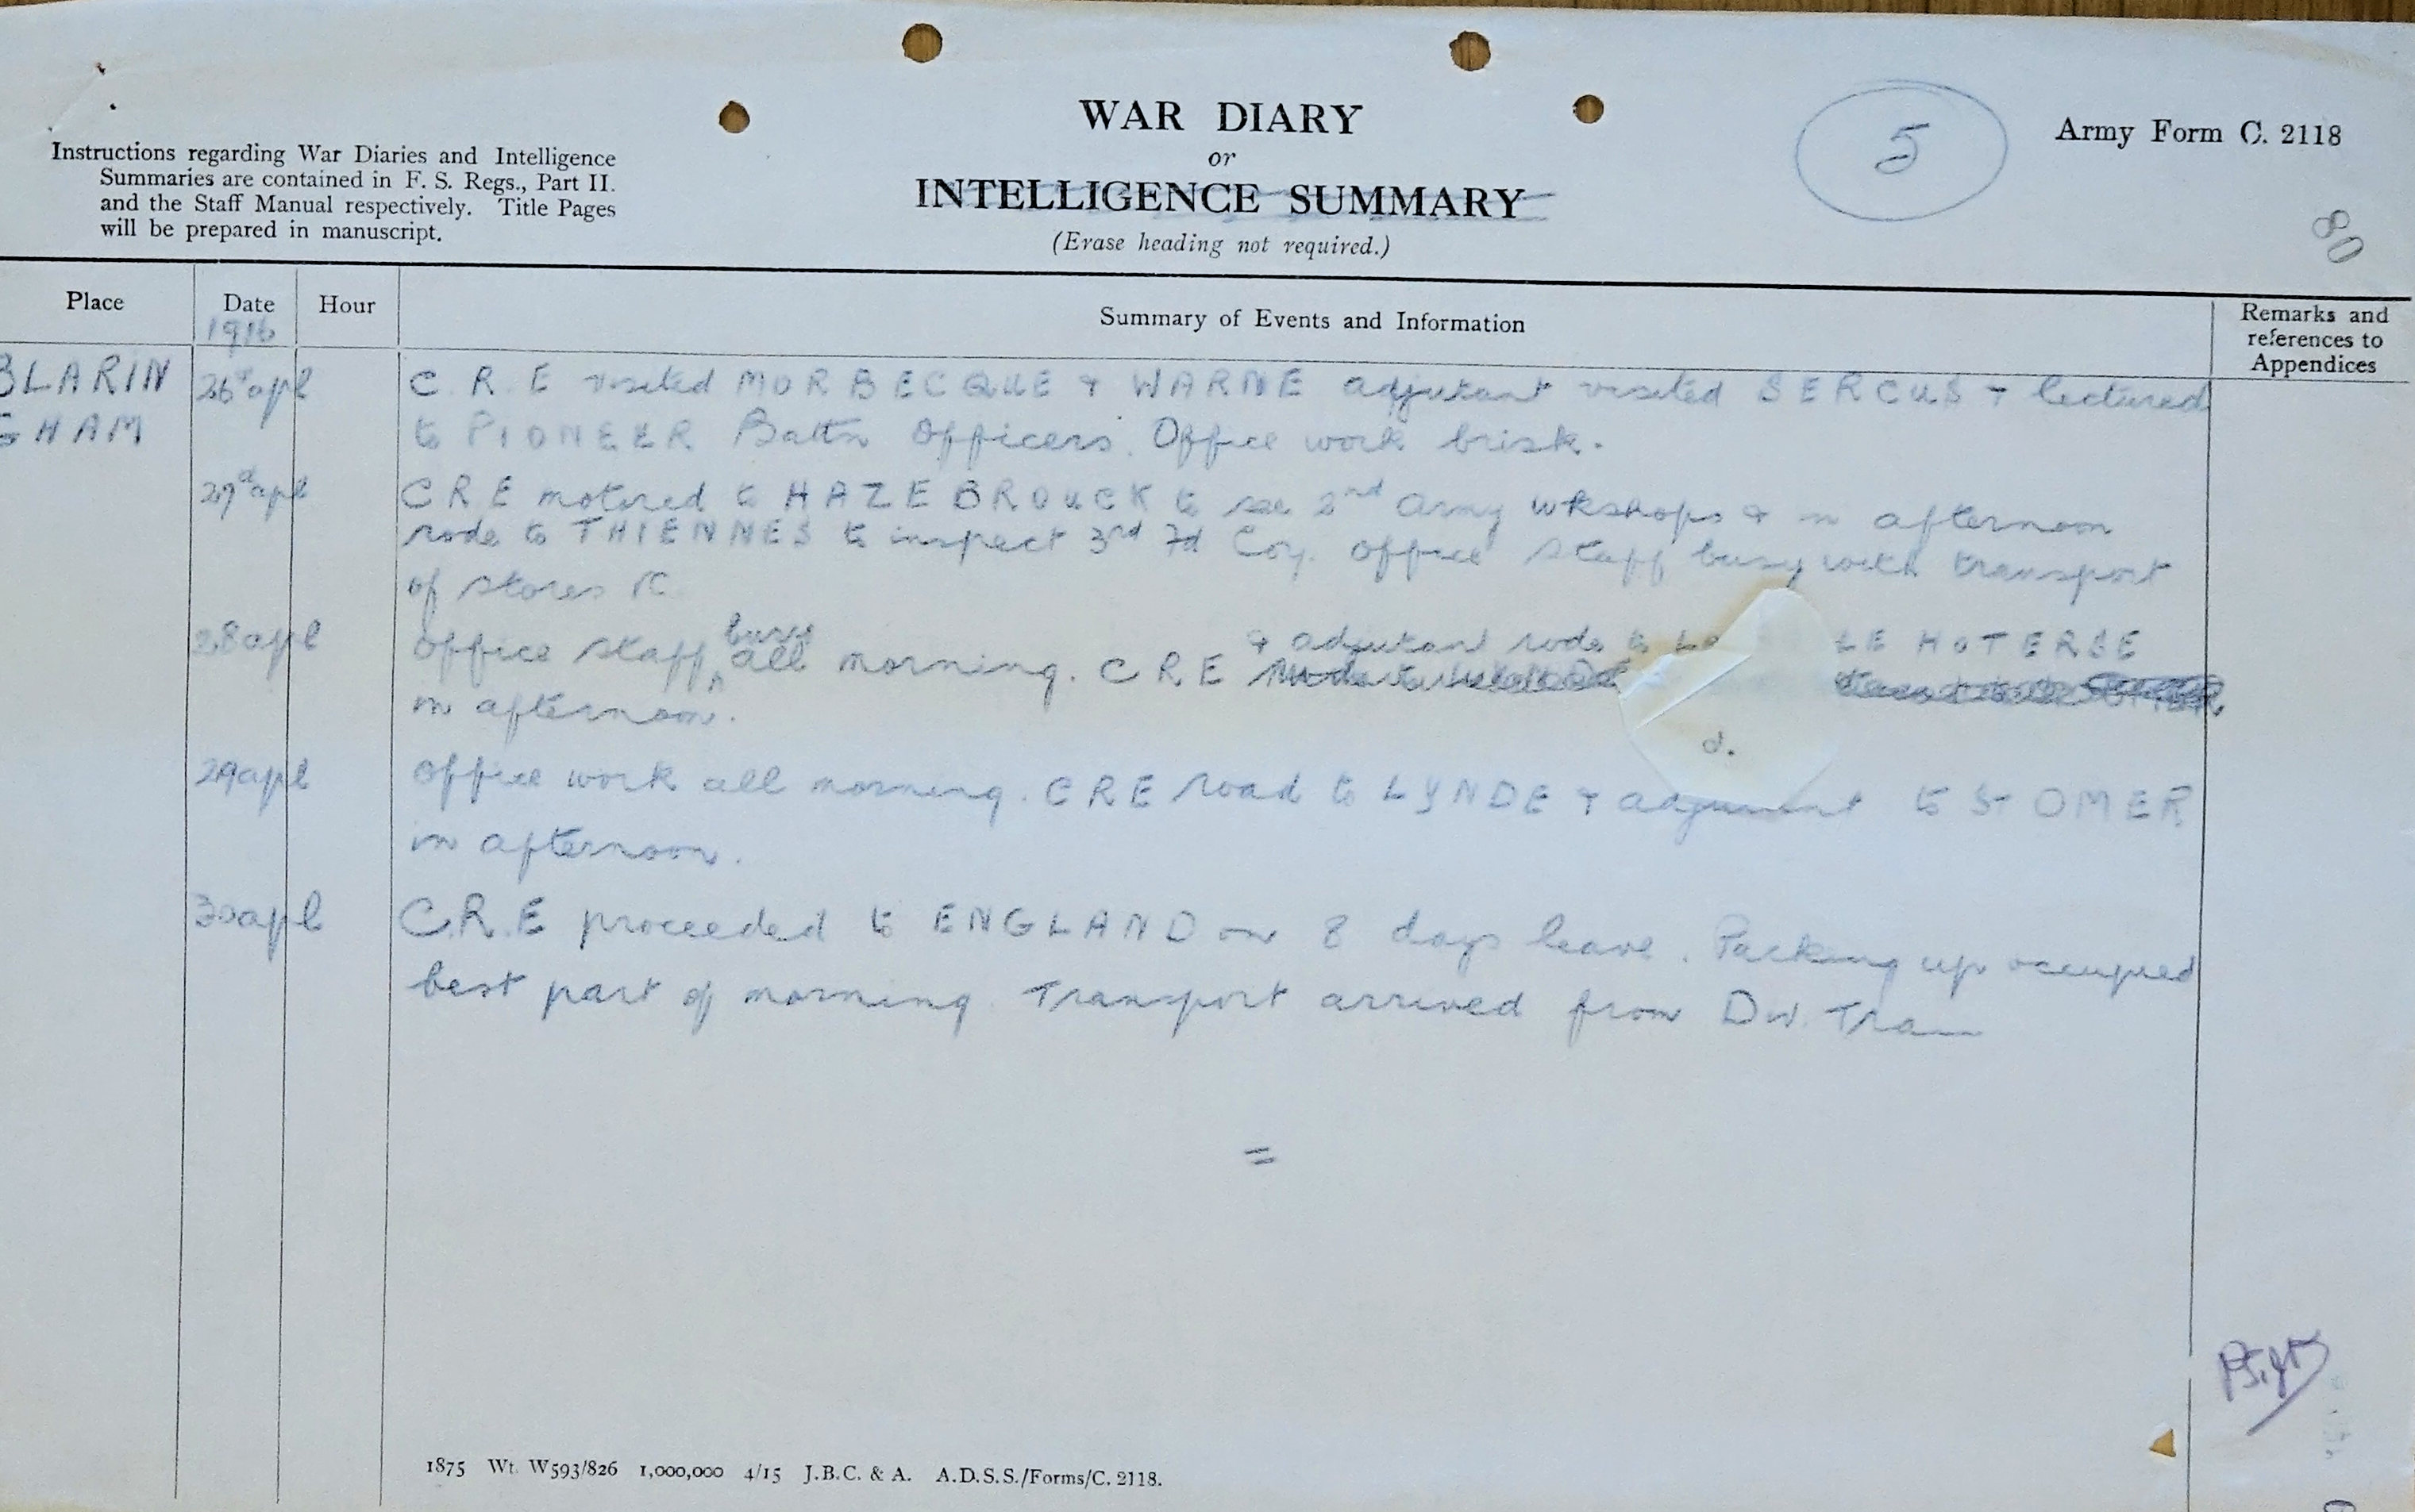 WAR DIARY
or
INTELLIGENCE SUMMARY
(Erase heading not required.)
5
Army Form C. 2118
80
Instructions regarding War Diaries and Intelligence
Summaries are contained in F. S. Regs., Part II.
and the Staff Manual respectively. Title Pages
will be prepared in manuscript.
Place Date Hour Summary of Events and Information Remarks and references to Appendices
1916
BLARIN
GHAM
26th apl C. R. E visited MORBECQUE & WARNE adjutant visited SERCUS & lectured
to PIONEER Battn Officers. Office work brisk.
27th apl CRE motored to HAZEBROUCK to see 2nd Army wkshops & in afternoon
rode to THIENNES to inspect 3rd Fd Coy. Office staff busy with transport
of stores &c
28 apl Office staff busy all morning. CRE & adjutant rode to LE HOTERBE
in afternoon.
d.
29 apl Office work all morning. CRE road to LYNDE & adjutant to St OMER
in afternoon.
30 apl C.R.E proceeded to ENGLAND on 8 days leave. Packing up occupied
best part of morning. Transport arrived from Div. Train
=
1875 Wt. W593/826 1,000,000 4/15 J.B.C. & A. A.D.S.S./Forms/C. 2118.